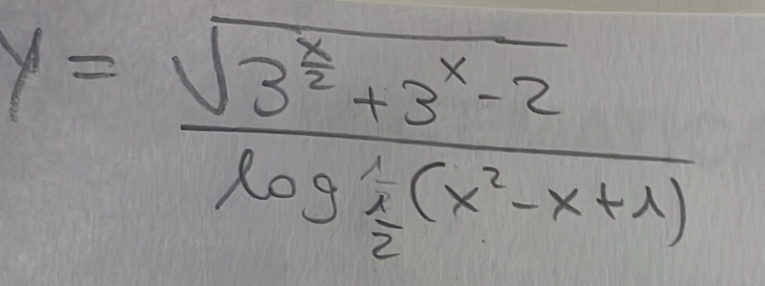 y = √(3^(x/2) + 3^x - 2)
log_(1/(1/2)) (x² - x + 1)